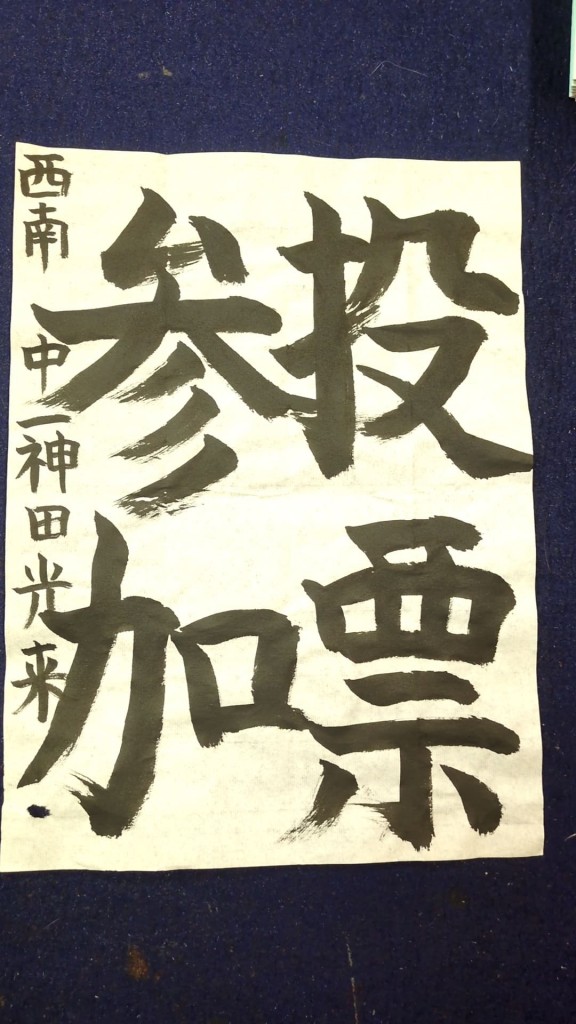 投票
参加
西南中一神田光来